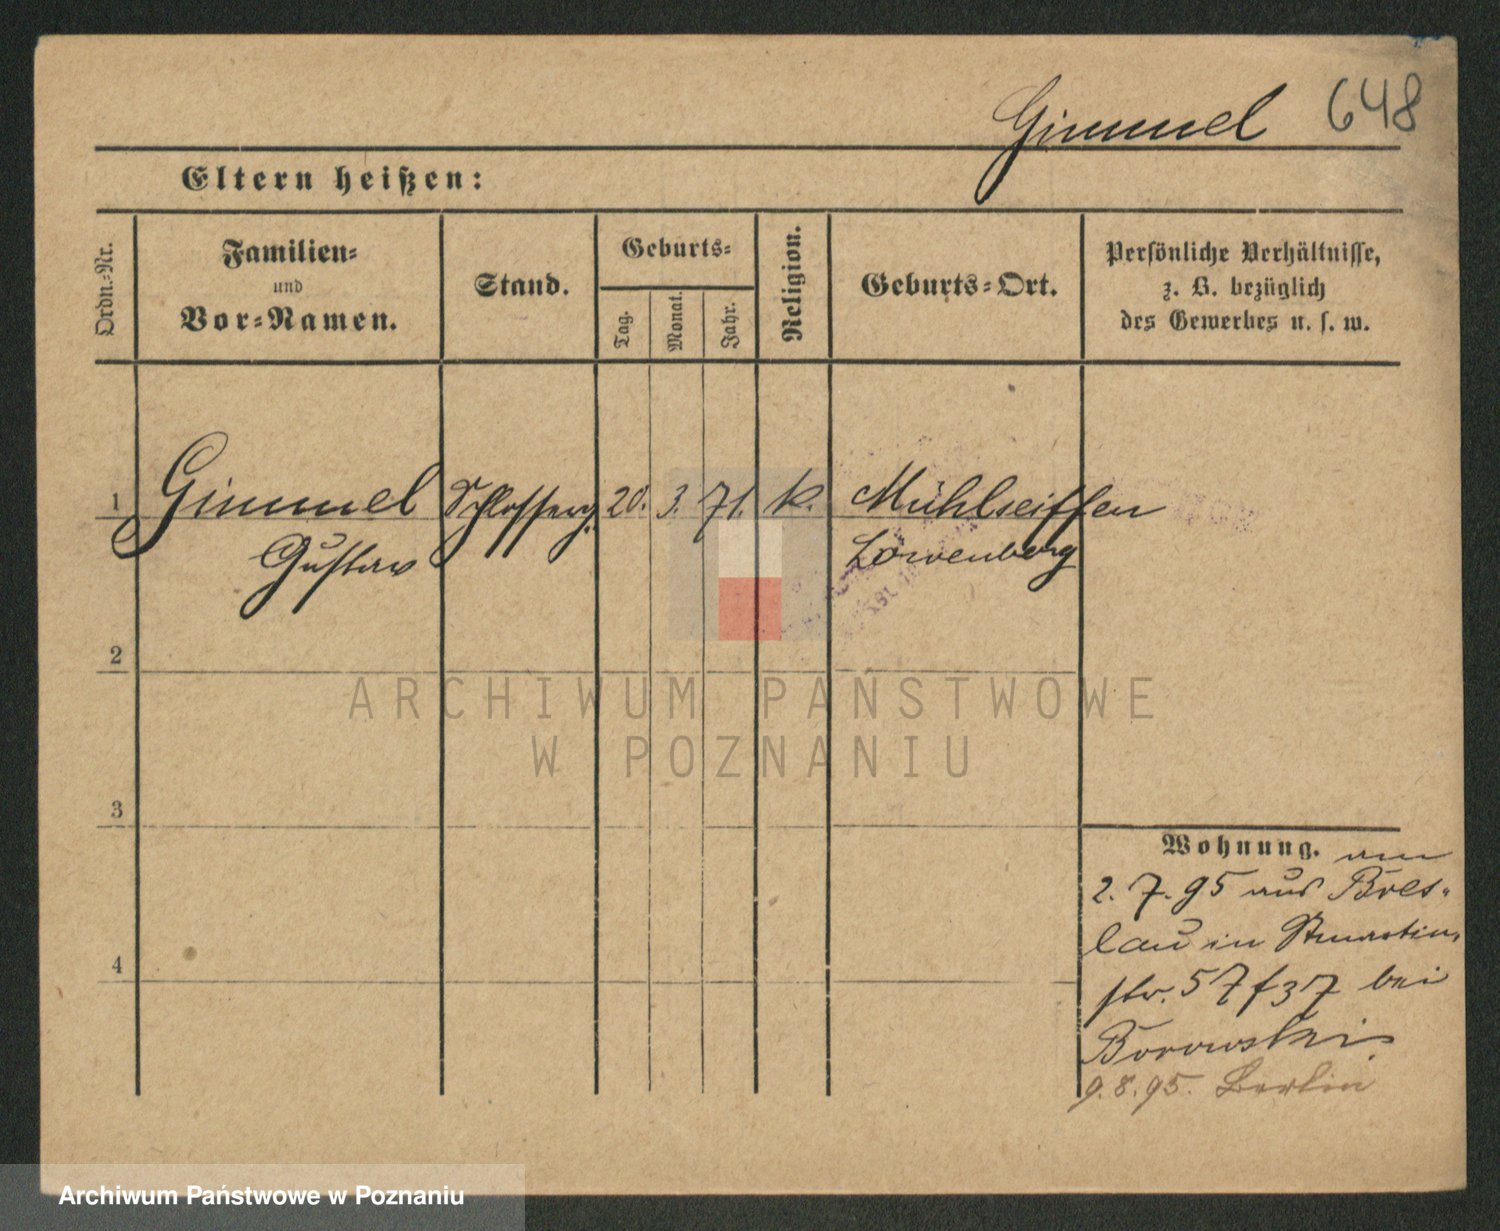 Gimmel 648
Eltern heißen:
Ordn.-Nr.
Familien-
und
Vor-Namen.
Stand.
Geburts-
Tag.
Monat.
Jahr.
Religion.
Geburts-Ort.
Persönliche Verhältnisse,
z. B. bezüglich
des Gewerbes u. s. w.
1 Gimmel Schlosserg. 20. 3. 71. k. Mühlseiffen
Gustav Löwenberg
2
ARCHIWUM PAŃSTWOWE
W POZNANIU
3
Wohnung. am
2. 7. 95 aus Bres-
lau in St martin
str. 57 f 37 bei
Borowski.
4
9. 8. 95. Berlin
Archiwum Państwowe w Poznaniu